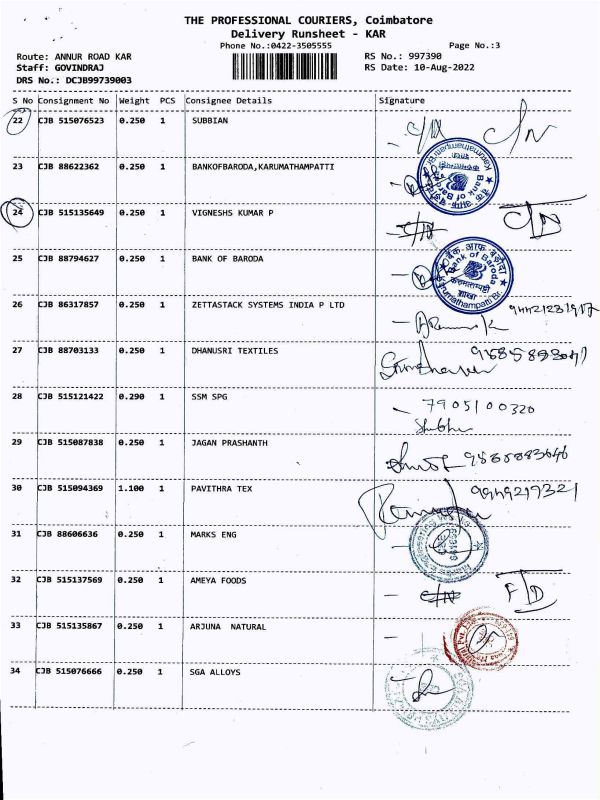 THE PROFESSIONAL COURIERS, Coimbatore
Delivery Runsheet - KAR
Phone No.:0422-3505555 Page No.:3
Route: ANNUR ROAD KAR RS No.: 997390
Staff: GOVINDRAJ RS Date: 10-Aug-2022
DRS No.: DCJB99739003
S No Consignment No Weight PCS Consignee Details Signature
22 CJB 515076523 0.250 1 SUBBIAN C/N
23 CJB 88622362 0.250 1 BANKOFBARODA,KARUMATHAMPATTI
Bank of Baroda
24 CJB 515135649 0.250 1 VIGNESHS KUMAR P
25 CJB 88794627 0.250 1 BANK OF BARODA
बैंक ऑफ़ बड़ौदा
Bank of Baroda
शाखा
26 CJB 86317857 0.250 1 ZETTASTACK SYSTEMS INDIA P LTD
27 CJB 88703133 0.250 1 DHANUSRI TEXTILES
28 CJB 515121422 0.290 1 SSM SPG 7905100320
29 CJB 515087838 0.250 1 JAGAN PRASHANTH
30 CJB 515094369 1.100 1 PAVITHRA TEX
31 CJB 88606636 0.250 1 MARKS ENG
32 CJB 515137569 0.250 1 AMEYA FOODS
33 CJB 515135867 0.250 1 ARJUNA NATURAL
34 CJB 515076666 0.250 1 SGA ALLOYS